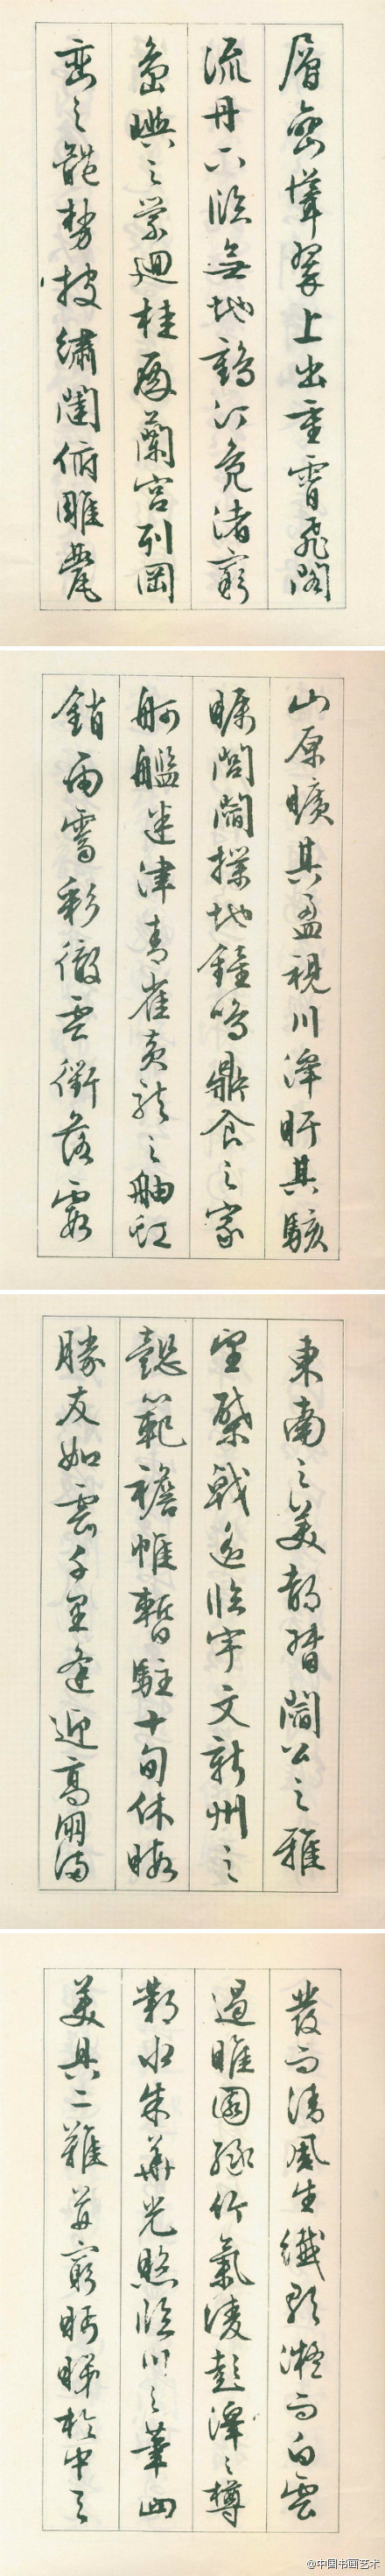 層巒聳翠上出重霄飛閣
流丹下臨無地鶴汀鳧渚窮
島嶼之縈迴桂殿蘭宮列岡
巒之體勢披繡闥俯雕甍
山原曠其盈視川澤盱其駭
矚閭閻撲地鐘鳴鼎食之家
舸艦迷津青雀黃龍之舳虹
銷雨霽彩徹雲衢落霞
東南之美都督閻公之雅
望棨戟遙臨宇文新州之
懿範襜帷暫駐十旬休暇
勝友如雲千里逢迎高朋滿
發而清風生纖歌凝而白雲
遏睢園綠竹氣凌彭澤之樽
鄴水朱華光照臨川之筆四
美具二難並窮眄睇於中天
@中国书画艺术